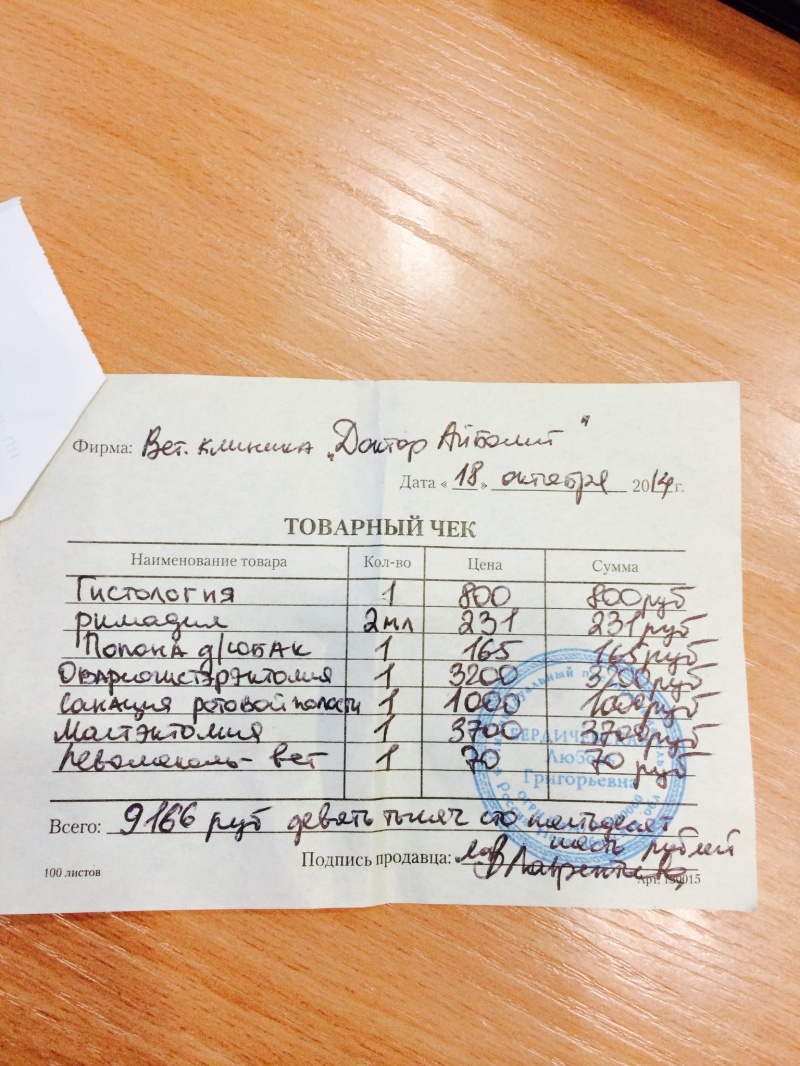 Фирма: Вет. клиника „Доктор Айболит"
Дата « 18 » октября 2014г.
ТОВАРНЫЙ ЧЕК
Наименование товара Кол-во Цена Сумма
Гистология 1 800 800 руб
римадил 2мл 231 231 руб
Попона д/собак 1 165 165 руб
Овариогистэрэктомия 1 3200 3200 руб
Санация ротовой полости 1 1000 1000 руб
Мастэктомия 1 3700 3700 руб
Левомеколь-вет 1 70 70 руб
Всего: 9166 руб девять тысяч сто шестьдесят
шесть рублей
Подпись продавца:
100 листов
Арт. 130015
Любовь
Григорьевна